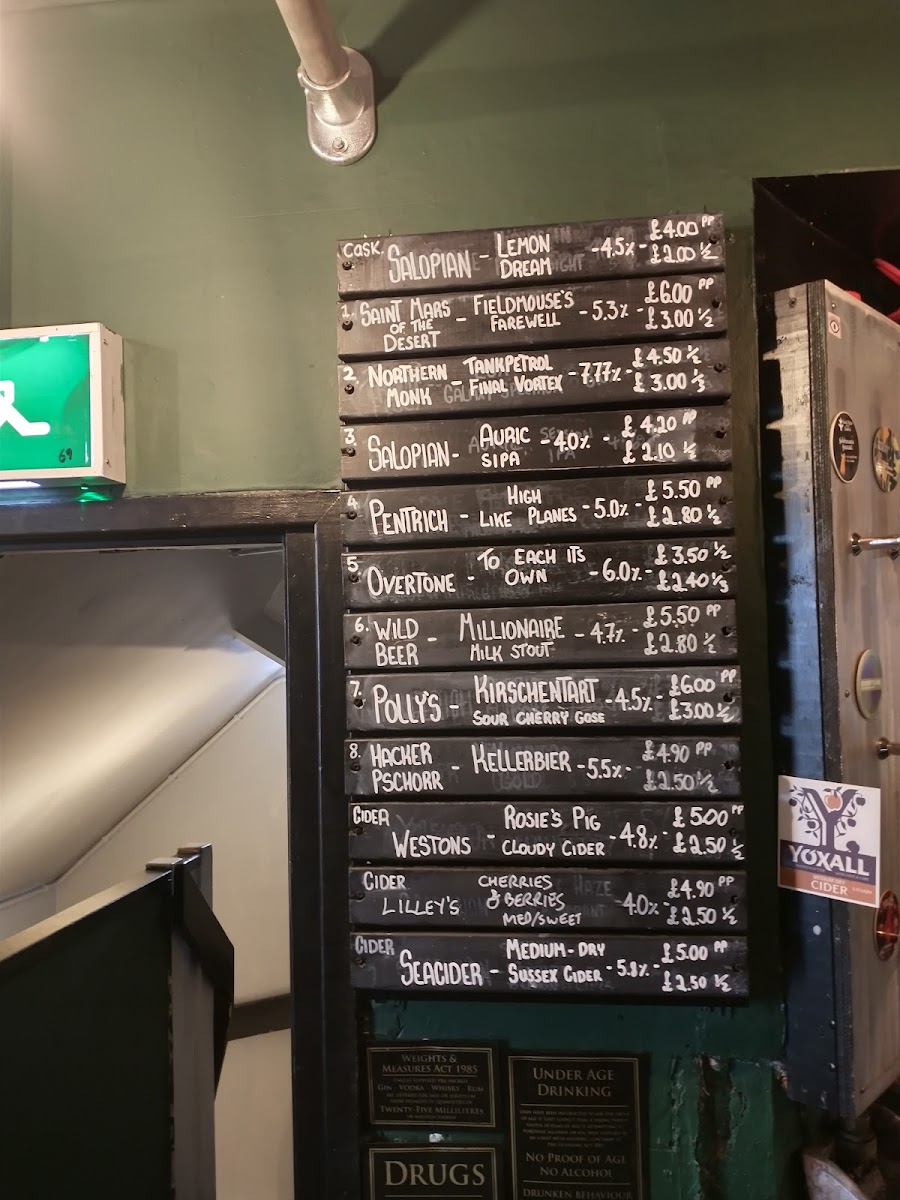 Cask. SALOPIAN - LEMON DREAM - 4.5% - £4.00 PP £2.00 ½
1. SAINT MARS OF THE DESERT - FIELDMOUSE'S FAREWELL - 5.3% - £6.00 PP £3.00 ½
2 NORTHERN MONK - TANKPETROL FINAL VORTEX - 7.77% - £4.50 ½ £3.00 ⅓
3. SALOPIAN - AURIC SIPA - 4.0% - £4.20 PP £2.10 ½
4 PENTRICH - HIGH LIKE PLANES - 5.0% - £5.50 PP £2.80 ½
5 OVERTONE - TO EACH ITS OWN - 6.0% - £3.50 ½ £2.40 ⅓
6. WILD BEER - MILLIONAIRE MILK STOUT - 4.7% - £5.50 PP £2.80 ½
7. POLLY'S - KIRSCHENTART SOUR CHERRY GOSE - 4.5% - £6.00 PP £3.00 ½
8. HACKER PSCHORR - KELLERBIER - 5.5% - £4.90 PP £2.50 ½
CIDER WESTONS - ROSIE'S PIG CLOUDY CIDER - 4.8% - £5.00 PP £2.50 ½
CIDER LILLEY'S CHERRIES & BERRIES MED/SWEET - 4.0% - £4.90 PP £2.50 ½
CIDER SEACIDER - MEDIUM-DRY SUSSEX CIDER - 5.8% - £5.00 PP £2.50 ½
69
YOXALL
CIDER
WEIGHTS &
MEASURES ACT 1985
GIN · VODKA · WHISKY · RUM
TWENTY FIVE MILLILITRES
DRUGS
UNDER AGE
DRINKING
NO PROOF OF AGE
NO ALCOHOL
DRUNKEN BEHAVIOUR